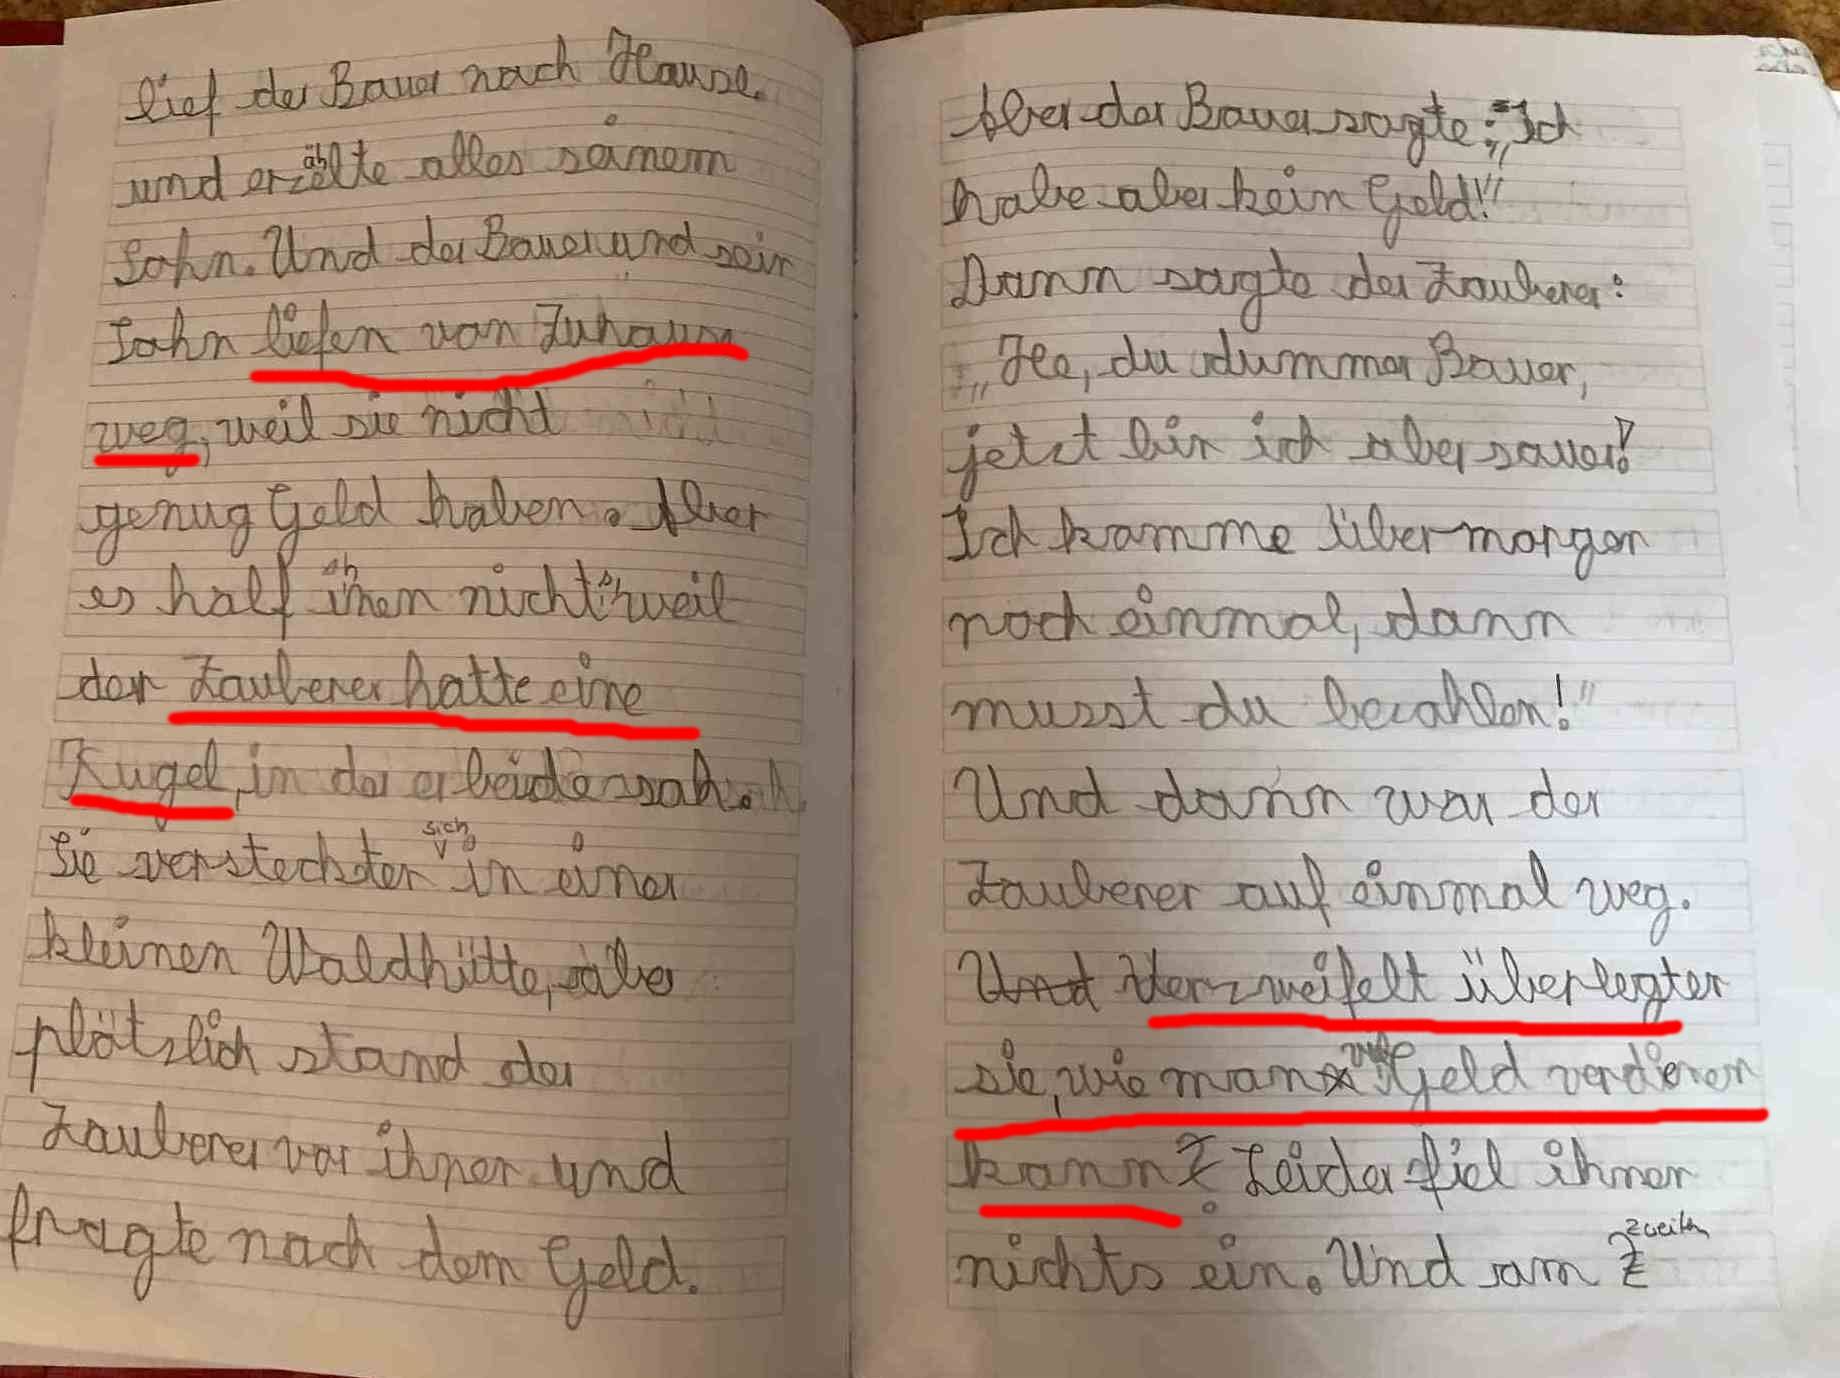 lief der Bauer nach Hause.
und erzälte alles seinem
äh
Sohn. Und der Bauer und sein
Sohn liefen von Zuhause
weg, weil sie nicht
genug Geld haben. Aber
es half ihnen nicht, weil
der Zauberer hatte eine
Kugel, in der er beide sah.
sich
Sie versteckten in einer
kleinen Waldhütte, aber
plötzlich stand der
Zauberer vor ihnen und
fragte nach dem Geld.
Aber der Bauer sagte: „Ich
habe aber kein Geld!"
Dann sagte der Zauberer:
„He, du dummer Bauer,
jetzt bin ich aber sauer!
Ich komme übermorgen
noch einmal, dann
musst du bezahlen!"
Und dann war der
Zauberer auf einmal weg.
Und Verzweifelt überlegten
sie, wie man Geld verdienen
kann. Leider fiel ihnen
nichts ein. Und am
zweiten